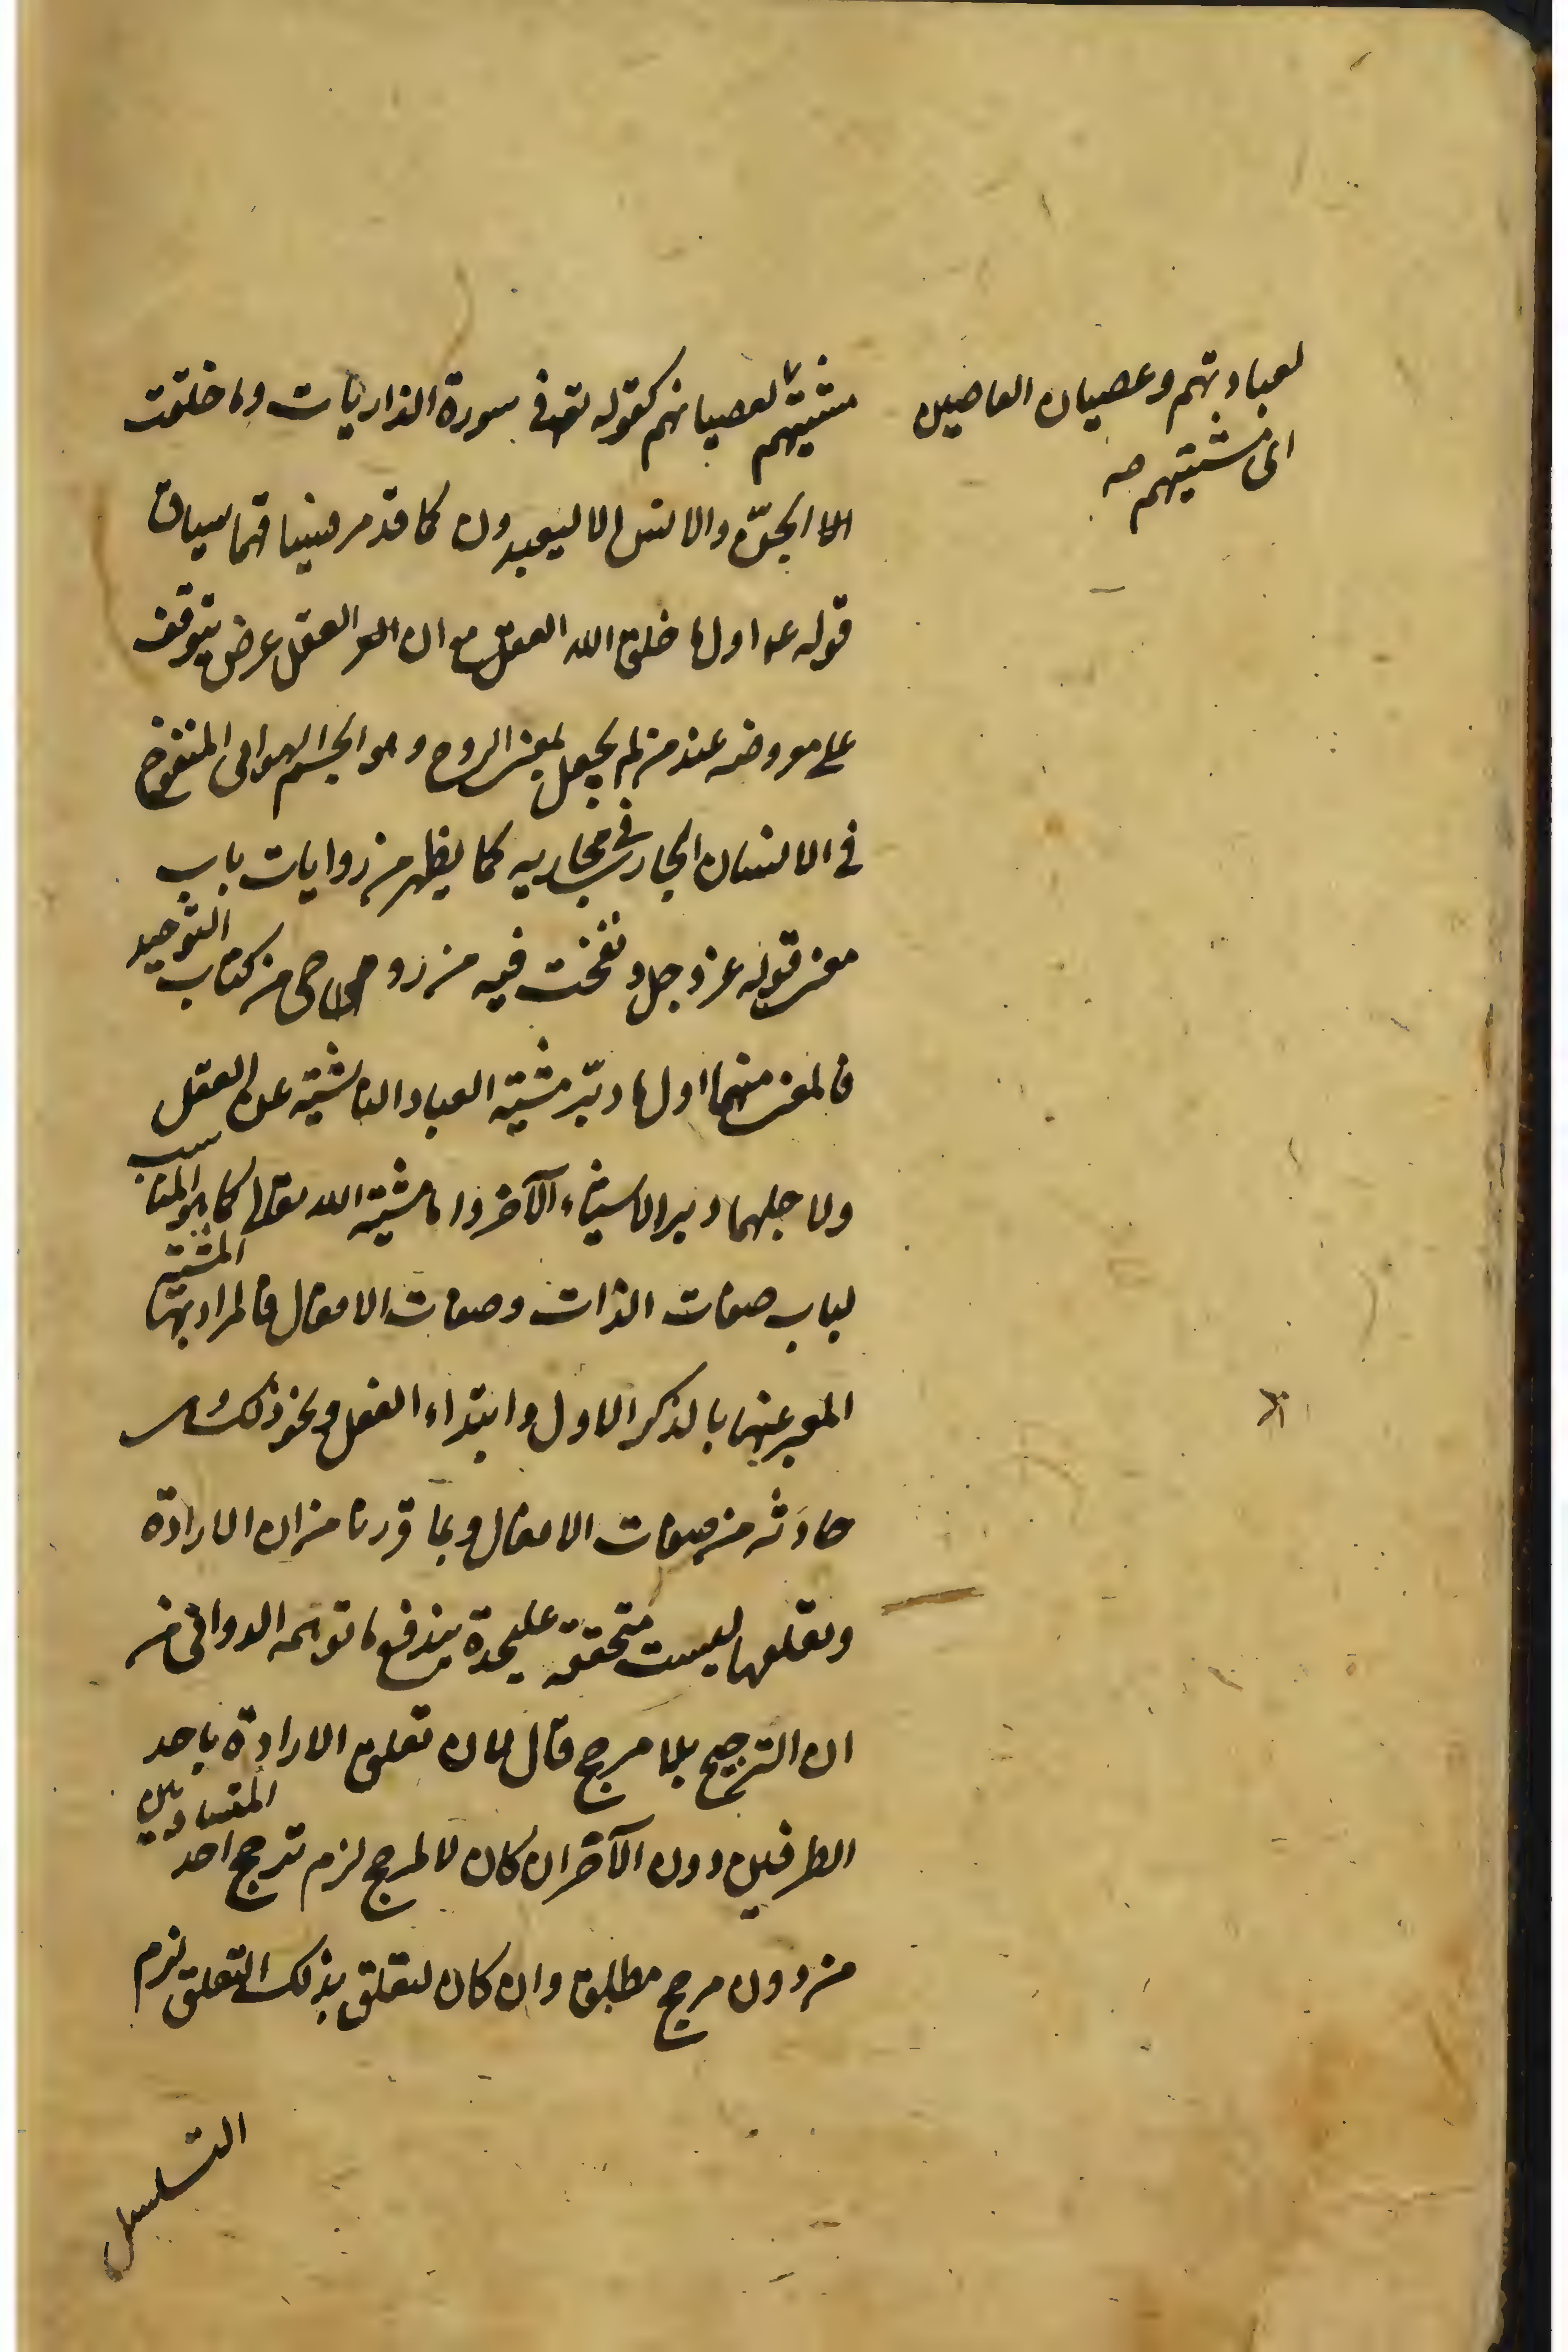 لعبادتهم وعصيان العاصين
الى مشيتهم صه
مشيتهم لعصيانهم كقوله تعه في سورة الذاريات وما خلقت
الا الجنّ والانس الا ليعبدون كما قد مر فينافيهما سياق
قوله عم اول ما خلق الله العقل مع ان العقل عرض يتوقف
على معروضه عند من لم يجعل بمعنى الروح وهو الجسم الهوائى المنفوخ
في الانسان الجارى في مجاريه كما يظهر من روايات باب
معنى قوله عز وجل ونفخت فيه من روحى من كتاب التوحيد
فالمعنى منهما اول ما دبّر مشية العباد الناشية عن العقل
ولاجلهما دبر الاشياء الآخر واما مشية الله تعالى كما هو المناسب
لباب صفات الذات وصفات الافعال فالمراد بها المشية
المعبر عنها بالذكر الاول وابتداء الفعل ونحو ذلك
حادثه من صفات الافعال وبما قررنا من ان الارادة
وتعلقها ليست متحققة عليحدة يندفع ما توهمه الدوانى من
ان الترجيح بلا مرجح قال لان تعلق الارادة باحد
الطرفين دون الآخر ان كان لا لمرجح لزم ترجح احد المتساويين
من دون مرجح مطلق وان كان لتعلق بذلك التعلق لزم
التسلسل